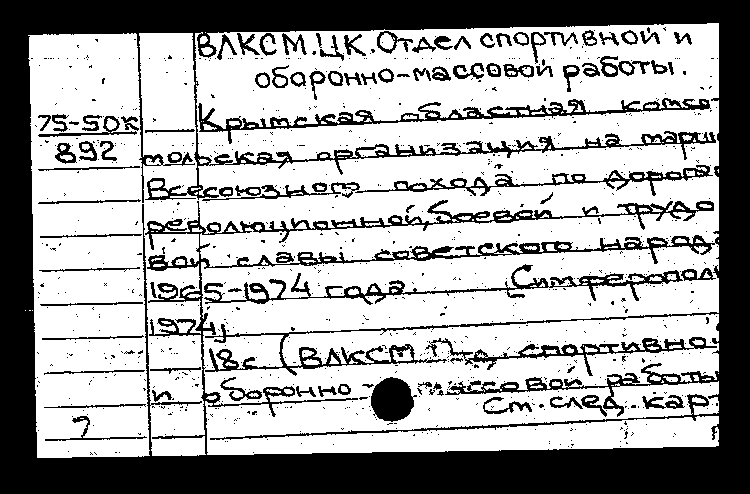 ВЛКСМ.ЦК.Отдел спортивной и
оборонно-массовой работы.
75-50к
892
Крымская областная комсо-
мольская организация на марш
Всесоюзного похода по дорога
революционной, боевой и трудо
вой славы советского народа
1965-1974 года. [Симферополь
1974]
18с (ВЛКСМ спортивной
и оборонно - массовой работы
См. след. карт
7